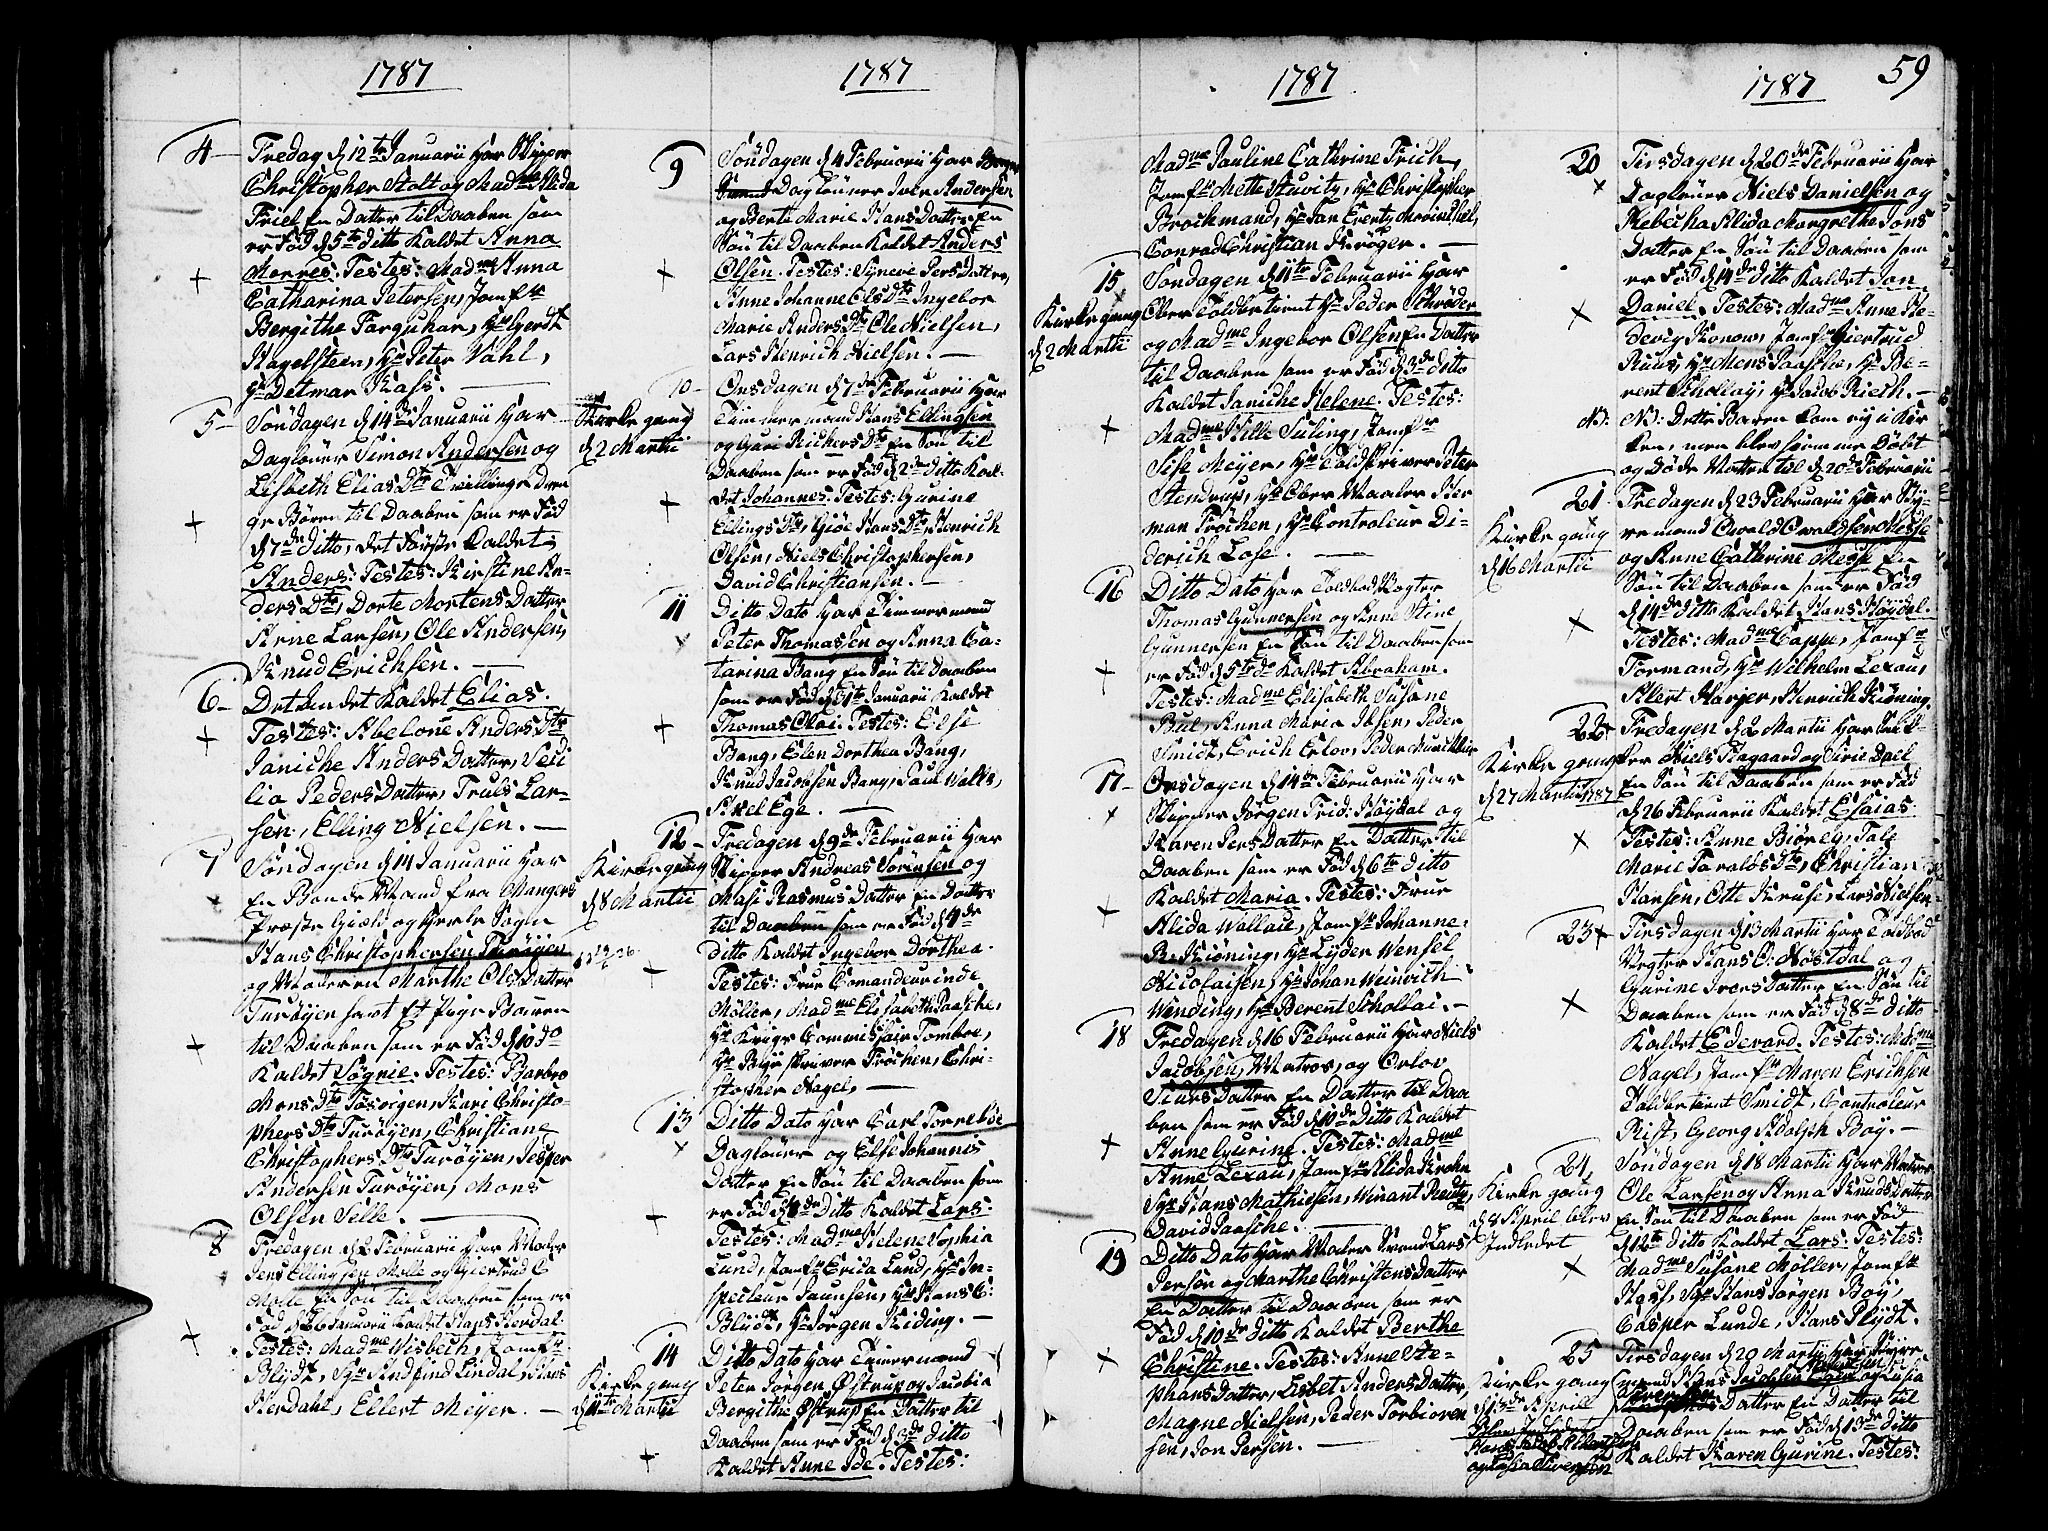 1787
4 Fredag d 12te Januarii har Skipper
Christopher Stolt og Madme Alida
Friel En Datter til Daaben som
er Fød d 5te ditto Kaldet Anna
Monres. Testes: Madme Anna
Catharina Petersen, Jomfr
Bergithe Farquhar, Hr Gerdt
Hagelsteen, Hr Peter Vahl,
Hr Detmar Kass.
5 Søndagen d 14de Januarii har
Dagløner Simon Andersen og
Lisbeth Elias Dtr Tvillinge Dren
ge Børen til Daaben som er Fød
d 7de ditto, det Første Kaldet
Anders. Testes: Kirstine An-
ders Dtr, Dorte Mortens Datter
Arne Larsen, Ole Andersen,
Knud Erichsen.
6 Det Andet Kaldet Elias.
Testes: Abelone Anders Dtr
Janiche Anders Datter, Ceci
lia Peders Datter, Truls Lar-
sen, Elling Nielsen.
7 Søndagen d 14 Januarii har
En Bonde Mand fra Mangers
Præste Gield og Herle Sogn
Hans Christophersen Turøyen
og Moderen Marthe Ols Datter
Turøyen samt Et Pige Baren
til Daaben som er Fød d 10 do
Kaldet Søgnie. Testes: Barbro
Mons Dtr Tosvigen, Kari Christo-
phers Dtr Turøyen, Christiane
Christophers Dtr Turøyen, Jesper
Andersen Turøyen, Mons
Olsen Selle.
8 Fredagen d 2 Februarii har Maler
Jens Ellingsen Molte og Giertrud C
Molte En Søn til Daaben som er
Fød d 26 Januarii Kaldet Hans Herdal.
Testes: Madme Wisbech, Jomfr
Blydt, Sr Andfind Lindal, Hans
Herdahl, Ellert Meyer.
1787
9 Søndagen d 4 Februarii har
Dagløner Iver Andersen
og Berte Marie Hans Datter En
Søn til Daaben Kaldet Anders
Olsen. Testes: Syneve Pers Datter,
Anne Johanne Ols Dtr Ingebor
Marie Anders Dtr Ole Nielsen,
Lars Henrich Nielsen.
10 Onsdagen d 7de Februarii har
Kirkegang
d 2 Martii
Timmermand Hans Ellingsen
og Guri Richers Dtr En Søn til
Daaben som er Fød d 2de ditto Kal-
det Johannes: Testes: Gurine
Ellings Dtr, Giøe Hans Dtr, Henrich
Olsen, Niels Christophersen,
David Christiansen.
11 Ditto Dato har Timmermand
Peter Thomassen og Anna Ca-
tarina Bang En Søn til Daaben
som er Fød d 31te Januarii Kaldet
Thomas Olai: Testes: Else
Bang, Elen Dorthea Bang,
Knud Jacobsen Bang, Paul Walke,
Axel Ege.
12 Fredagen d 9de Februarii har
Kirkegang
d 8 Martii
Skipper Andreas Sørensen og
Masi Rasmus Datter En Datter
til Daaben som er Fød d 4de
ditto Kaldet Ingebor Dorthea.
Testes: Frue Comandeurinde
Møller, Madme Elisabeth Paasche,
Hr Krigs Commissair Tombre,
Hr Byeskriver Trochen, Chri-
stopher Nagel,
13 Ditto Dato har Carl Torrebøe
Dagløner og Else Johannis
Datter En Søn til Daaben som
er Fød d 4de Ditto Kaldet Lars:
Testes: Madme Helene Sophia
Lund, Jomfr Erica Lund, Hr In-
specteur Paunsen, Hr Hans C:
Blydt, Hr Jørgen Kiding.
14 Ditto Dato har Timermand
Kirkegang
d 11te Martii
Peter Jørgen Østrup og Jacobia
Bergithe Østrup En Datter til
Daaben som er Fød d 3de ditto
Kaldet Anne Ide. Testes:
1787
Madme Pauline Cathrine Frich,
Jomfr Mette Stuvitz, Hr Christopher
Brochmand, Hr Jan Evertz Mørinckel,
Conrad Christian Krøger.
15 Søndagen d 11te Februarii har
Kirkegang
d 2 Martii
Ober Toldbetient Hr Peder Schrøder
og Madme Ingebor Olsen En Datter
til Daaben som er Fød d 3de ditto
Kaldet Janiche Helene. Testes:
Madme Hille Suling, Jomfr
Sise Meyer, Hr Toldskriver Peter
Stendrup, Hr Ober Maaler Her
man Frochen, Hr Controleur Di-
derich Lose.
16 Ditto Dato har Toldbod Vogter
Thomas Gunnersen og Anne Stine
Gunnersen En Søn til Daaben som
er Fød d 5te do Kaldet Abraham.
Testes: Madme Elisabeth Susane
Bul, Anna Maria Ibsen, Peder
Smidt, Erich Erlov, Peder
17 Onsdagen d 14de Februarii har
Skipper Jørgen Frid: Høydal og
Karen Pers Datter En Datter til
Daaben som er Fød d 6te ditto
Kaldet Maria. Testes: Frue
Alida Wallace, Jomfr Johanne
B Kiøning, Hr Lyder Wensel
Nicolaisen, Hr Johan Weinvich
Wending, Hr Berent Schollai.
18 Fredagen d 16 Februarii har Niels
Jacobsen, Matros, og Orlov
Siurs Datter En Datter til Daa
ben som er Fød d 10de Ditto Kaldet
Anne Gurine. Testes: Madme
Anne Lexau, Jomfr Alida Krohn
Sr Hans Mathiesen, Winant Reutz
David Paasche.
19 Ditto Dato har Maler Svend Lars
Persen og Marthe Christens Datter
En Datter til Daaben som er
Fød d 10de Ditto Kaldet Berthe
Christine. Testes: Anne Ste-
phans Datter, Lisbet Anders Datter,
Magne Nielsen, Peder Torbioren
sen, Jon Persen.
1787
59
20 Tirsdagen d 20de Februarii har
Dagløner Niels Danielsen og
Rebecha Alida Margrethe Jons
Datter En Søn til Daaben som
er Fød d 14de ditto Kaldet Jan
Daniel. Testes: Madme Anne He-
devig Konow, Jomfr Giertrud
Ruus, Hr Mons Paasche, Hr Be-
rent Schollay, Hr Jacob Rieth.
NB: NB: Dette Baren kom eij i Kir
ken, men blev hiemme Døbt
og Døde Natten til d 20de Februarii
21 Fredagen d 23 Februarii har Sty-
Kirkegang
d 16 Martii
remand Ewald Ewaldsen Messe
og Anne Cathrine Messe En
Søn til Daaben som er Fød
d 14de Ditto Kaldet Hans Høydal.
Testes: Madme Cappe, Jomfr
Formand, Hr Wilhelm Lexau,
Alert Harjer, Henrich Kiøning.
22 Fredagen d 2 Martii har
Kirkegang
d 27 Martii 1787
Niels Aagaard og Sirie Dael
En Søn til Daaben som er Fød
d 26 Februarii Kaldet Esaias.
Testes: Anne Biørely, Tale
Marie Taralds Dtr, Christian
Hansen, Otte Kruse, Lars Nielsen
23 Tirsdagen d 13 Martii har Toldbod
Vogter Hans O: Høstdal og
Gurine Ivers Datter En Søn til
Daaben som er Fød d 8de Ditto
Kaldet Edevard. Testes: Madme
Nagel, Jomfr Maren Erichsen
Toldbetient Smidt, Controleur
Rist, Georg Adolph Boy.
24 Søndagen d 18 Martii har Matros
Kirkegang
d 8 April blev
Indledet
Ole Larsen og Anna Knuds Datter
En Søn til Daaben som er Fød
d 12te Ditto Kaldet Lars: Testes:
Madme Susane Møller, Jomfr
Hass, Sr Hans Jørgen Boy,
Casper Lunde, Hans Plydt.
25 Tirsdagen d 20 Martij har Styre
Kirkegang
d 13de Aprill
Blev Indledet
mand Hans Jacob og Lusia
Datter En Datter til
Daaben som er Fød d 13de Ditto
Kaldet Karen Gurine. Testes: